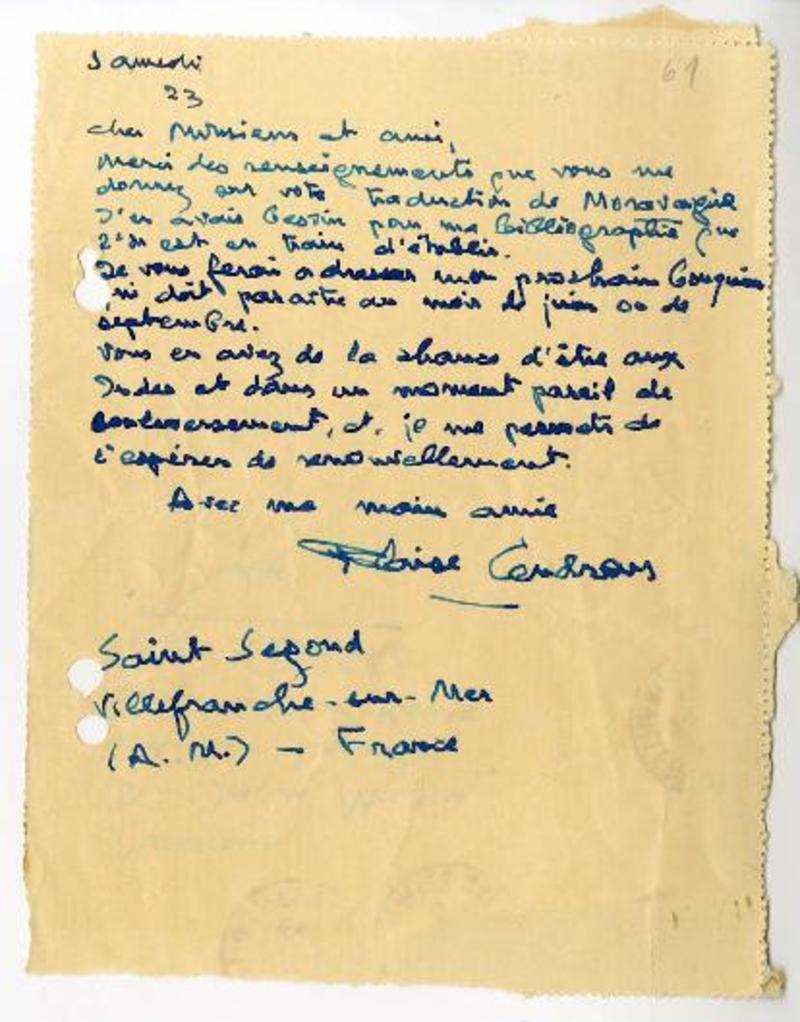 Samedi
23
61
cher Monsieur et ami,
Merci des renseignements que vous me
donnez sur votre traduction de Moravagine
J'en avais besoin pour ma bibliographie que
l'on est en train d'établir.
Je vous ferai adresser mon prochain bouquin
qui doit paraître au mois de juin ou de
septembre.
Vous en avez de la chance d'être aux
Indes et dans un moment pareil de
bouleversement, et, je me permets de
l'espérer de renouvellement.
Avec ma main amie
Blaise Cendrars
Saint Segond
Villefranche-sur-Mer
(A. M.) - France